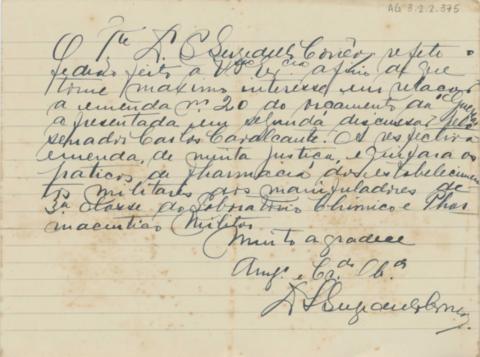 AG 3.2.2.375
O Tte Dr. S Serzedello Corrêa, repete o
pedido feito a V. Excia afim de que
tome maximo interesse em relação
a emenda nº 20 do orçamento da Guerra
apresentada, em segunda discussão pelo
senador Carlos Cavalcante. A respectiva
emenda, de muita justiça, equipara os
praticos de pharmacia dos estabelecimen
tos militares aos manipuladores de
3a classe do Laboratorio Chimico e Phar
maceutico Militar.
Muito agradece
Amgo e Cro Obo